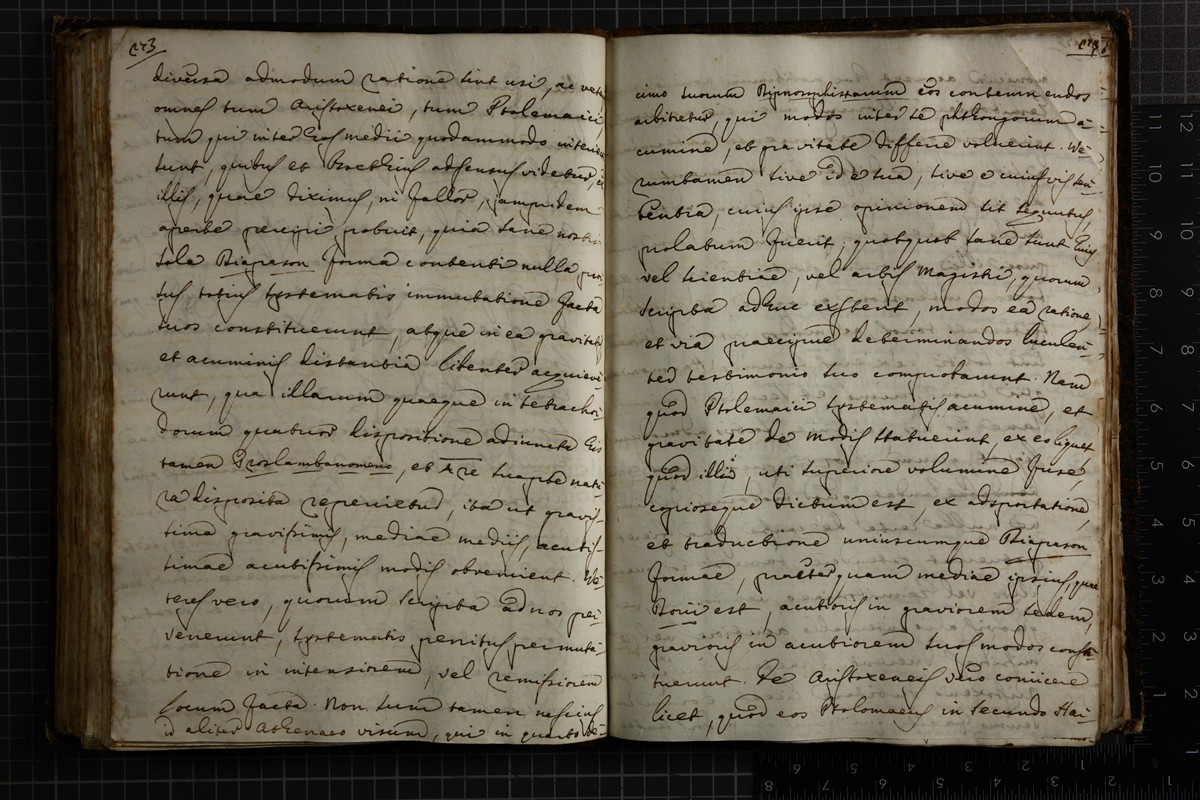 273
diversa admodum ratione sint usi, ac vete
omnes tum Aristoxenei, tum Ptolemaici,
tum qui inter Eos medii quodammodo
sunt, quibus et Boethius adsensus videtur,
illis, quae diximus, ni fallor, jampridem
aperte percipi potuit, quia sane nostri
sola Diapason forma contenti nulla
totius systematis immutatione facta
suos constituerunt, atque in ea gravitatis
et acuminis distantia libenter acquieve
runt, qua illarum quaeque in tetrachor
dorum quatuor dispositione adiuncto Eis
tamen Proslambanomeno, et A re suapte natu
ra disposita reperietur, ita ut gravis-
sima gravissimis, mediae mediis, acutis-
simae acutissimis modis obvenient. Ve-
teres vero, quorum scripta ad nos per
venerunt, systematis penitus permuta-
tione in intensiorem, vel remissiorem
locum facta. Non sum tamen nescius
id aliter Athenaeo visum, qui in quarto de-
cimo suorum Dipnosophistarum eos contemnendos
arbitretur, qui modos inter se phthongorum a-
cumine, et gravitate differre voluerint. Ve-
rumtamen sive id e sua, sive e cuiusvis sen-
tentia, cuius ipse opinionem sit sequutus,
prolatum fuerit; quotquot sane sunt Eius
vel scientiae, vel artis Magistri, quorum
scripta adhuc exstent, modos ea ratione
et via praecipue determinandos luculen-
ter testimonio suo comprobarunt. Nam
quod Ptolemaici systematis acumine, et
gravitate de modis statuerint, ex eo liquet
quod illi, uti superiore volumine fuse,
copioseque dictum est, ex adsportatione,
et traductione uniuscuiusque Diapason
formae, praeterquam mediae ipsius, quae
Dorii est, acutioris in graviorem sedem,
gravioris in acutiorem suos modos consti-
tuerunt. De Aristoxeneis vero coniicere
licet, quod eos Ptolomaeus in secundo Har-